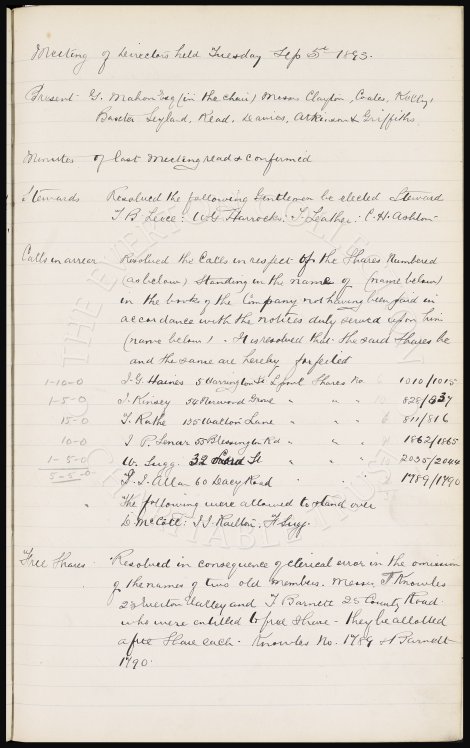 Meeting of Directors held Tuesday Sep 5th 1893.
Present G. Mahon Esq (in the chair) Messrs Clayton, Coates, Kelly,
Baxter Leyland, Read, Davies, Atkinson & Griffiths
Minutes of last Meeting read & confirmed
Stewards Resolved the following Gentlemen be elected Steward
T B Leece: W G Harrocks: J Leather: C H Ashton
Calls in arrear Resolved the Calls in respect of the Shares Numbered
(as below) Standing in the name of (name below)
in the books of the Company not having been paid in
accordance with the notices duly served upon him
(name below). It is resolved that the said Shares be
and the same are hereby forfeited
1-10-0 J. G. Haines 5 Harrington St L'pool Shares No 6 1010/1015
1-5-0 J. Kinsey 54 Norwood Grove " " " 10 828/837
15-0 T. 135 Walton Lane " " " 6 811/816
10-0 J P. 55 Blessington Rd " " " 4 1862/1865
1-5-0 W. Sugg. 32 St " " " 10 2035/2044
5-5-0 Allan 60 Dacy Road " " " 1789/1790
The following were allowed to stand over
D. McColl: J. J. Railton, F Sugg.
Free Shares Resolved in consequence of clerical error in the omission
of the names of two old Members. Messrs T Knowles
23 Everton Valley and T Barnett 25 County Road
who were entitled to free Share - they be allotted
a free Share each - Knowles No. 1789 & Barnett
1790.